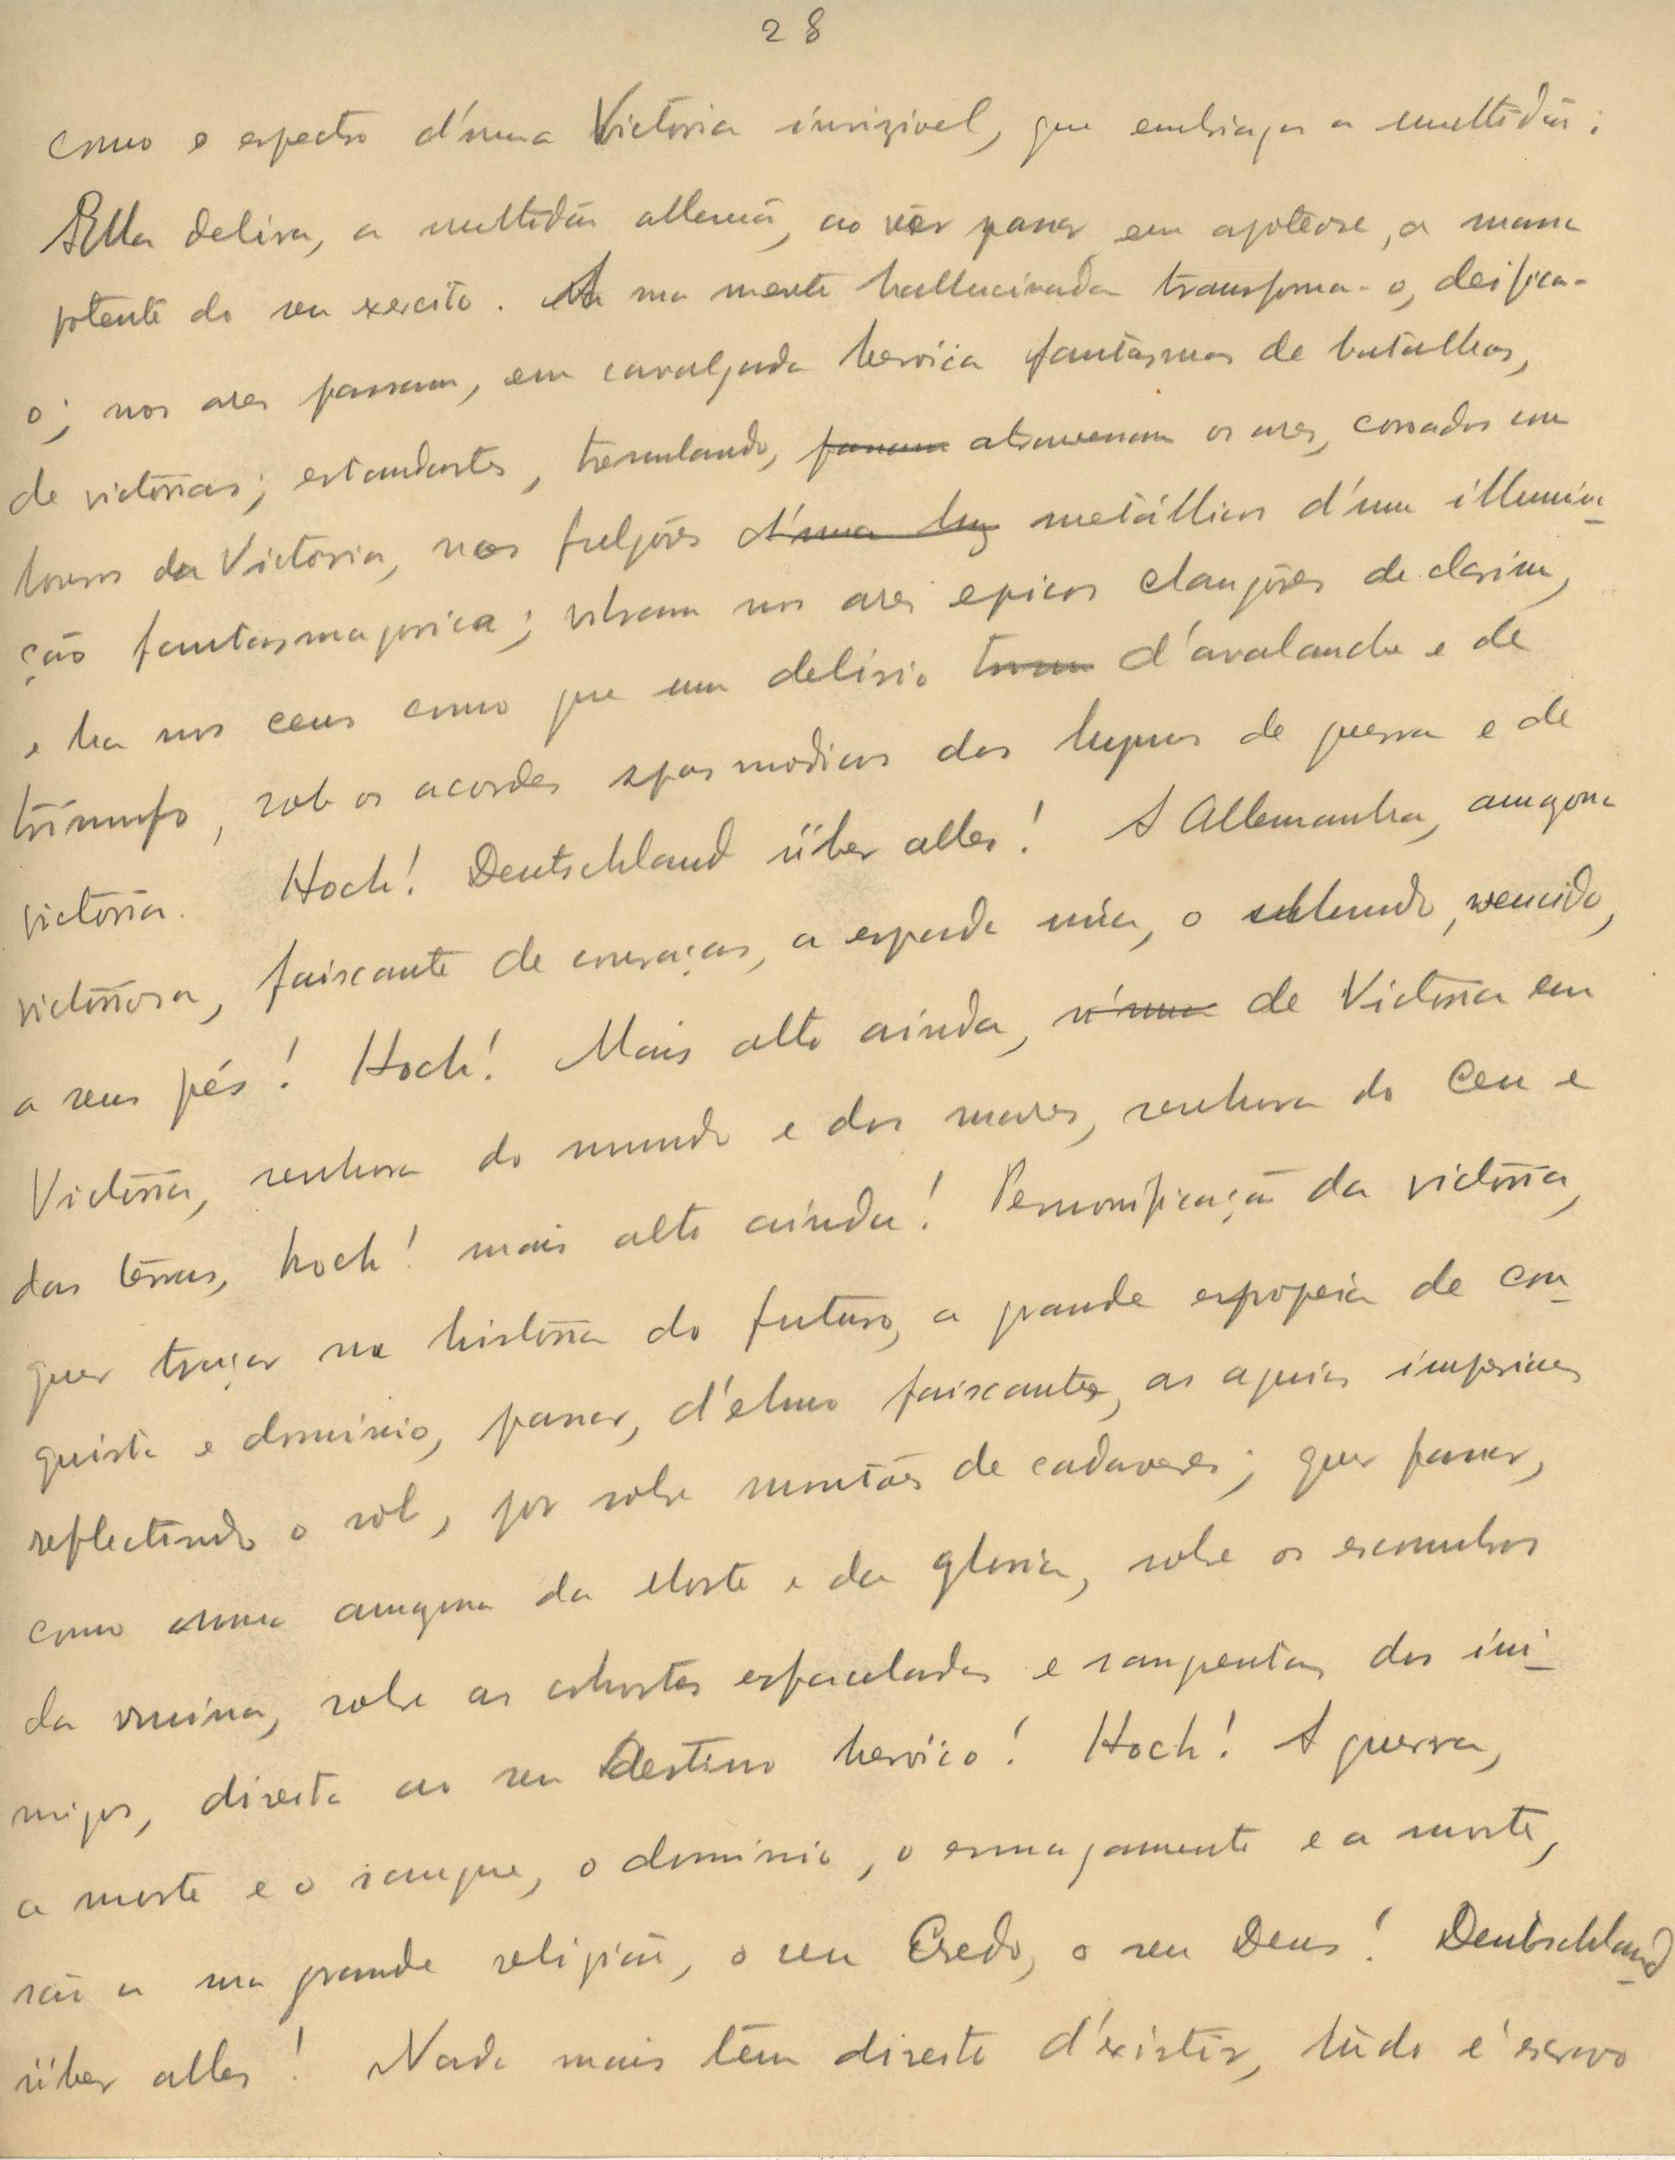 28
como o espectro d'uma Victoria invizivel, que embriaga a multidão:
Ella delira, a multidão allemã, ao vêr passar em apoteose, a massa
potente do seu exercito. A sua mente hallucinada transforma-o, deifica-
o; nos ares passam, em cavalgada heroica fantasmas de batalhas,
de victorias; estandartes, tremulando, passam atravessam os ares, coroados com
louros da Victoria, nos fulgôres d'uma luz metállicos d'uma illumina-
ção fantasmagorica; vibram nos ares epicos clangôres de clarim,
e ha nos ceus como que um delirio d'avalanche e de
triumfo, sob os acordes spasmodicos dos hymnos de guerra e de
victoria. Hoch! Deutschland über alles! A Allemanha, amazona
victoriosa, faiscante de couraças, a espada núa, o mundo, vencido,
a seus pés! Hoch! Mais alto ainda, n'uma de Victoria em
Victoria, senhora do mundo e dos mares, senhora do Ceu e
das terras, hoch! mais alto ainda! Personificação da victoria,
quer traçar na historia do futuro, a grande espopeia de con-
quista e dominio, passar, d'elmo faiscante, as aguias imperiaes
reflectindo o sol, por sobre montões de cadaveres; quer passar,
como uma amazona da Morte e da gloria, sobre os escombros
da ruina, sobre as cohortes esfaceladas e sangrentas dos ini-
migos, direita ao seu Destino heroico! Hoch! A guerra,
a morte e o sangue, o dominio, o esmagamento e a morte,
são a sua grande religião, o seu Credo, o seu Deus! Deutschland
über alles! Nada mais têm direito d'existir, tudo é escravo